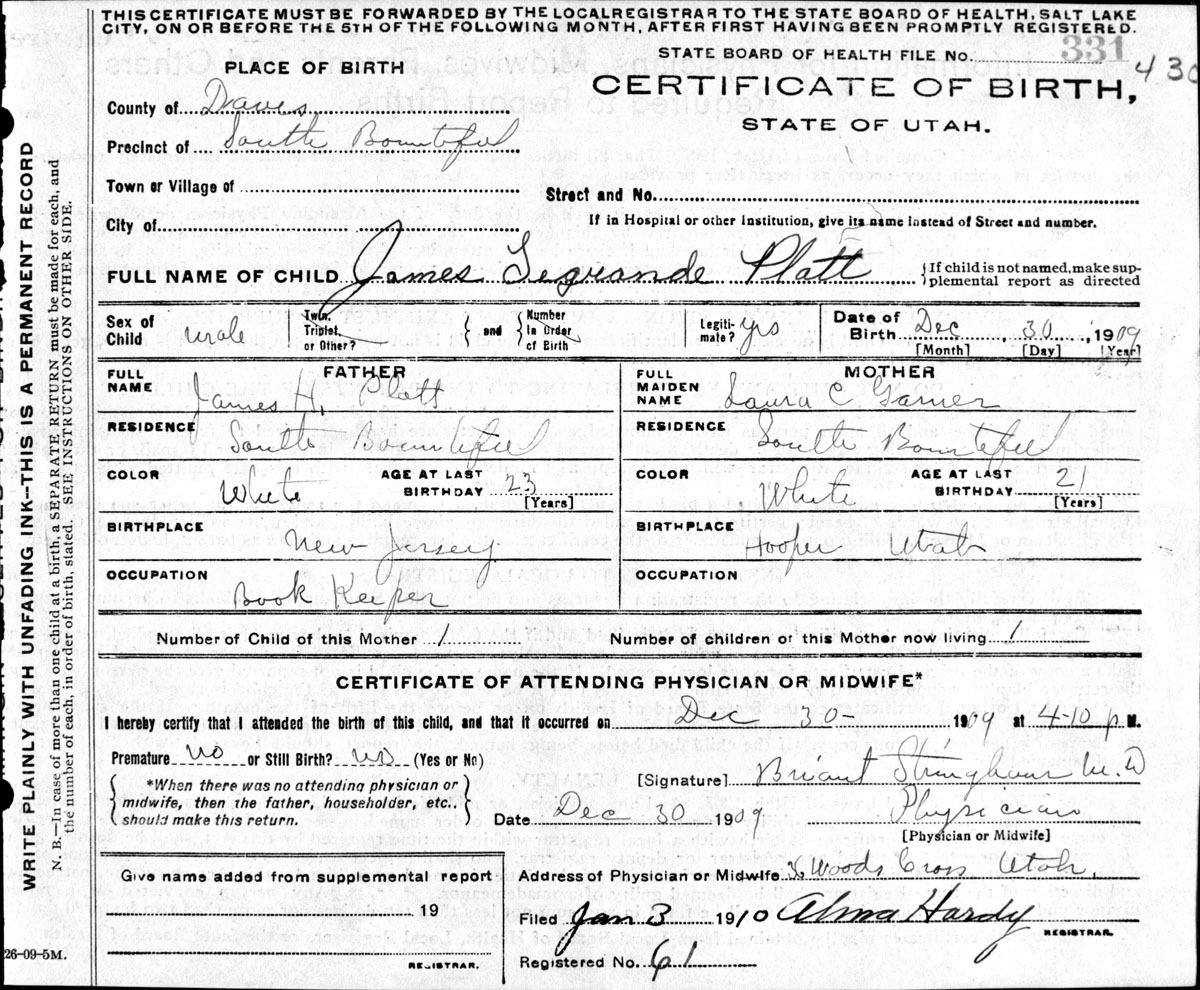 THIS CERTIFICATE MUST BE FORWARDED BY THE LOCAL REGISTRAR TO THE STATE BOARD OF HEALTH, SALT LAKE
CITY, ON OR BEFORE THE 5TH OF THE FOLLOWING MONTH, AFTER FIRST HAVING BEEN PROMPTLY REGISTERED.
STATE BOARD OF HEALTH FILE No. 331 430
PLACE OF BIRTH
CERTIFICATE OF BIRTH,
STATE OF UTAH.
County of Davis
Precinct of South Bountiful
Town or Village of
Street and No.
City of
If in Hospital or other Institution, give its name instead of Street and number.
FULL NAME OF CHILD James Legrande Platt {If child is not named, make sup-
plemental report as directed
Sex of Child male Twin, Triplet, or Other? } and { Number in Order of Birth Legiti-mate? yes Date of Birth Dec 30, 1909
[Month] [Day] [Year]
FATHER MOTHER
FULL NAME James H. Platt FULL MAIDEN NAME Laura C Garner
RESIDENCE South Bountiful RESIDENCE South Bountiful
COLOR White AGE AT LAST BIRTHDAY 23 [Years] COLOR White AGE AT LAST BIRTHDAY 21 [Years]
BIRTHPLACE New Jersey BIRTHPLACE Hooper Utah
OCCUPATION Book Keeper OCCUPATION
Number of Child of this Mother 1 Number of children of this Mother now living 1
CERTIFICATE OF ATTENDING PHYSICIAN OR MIDWIFE*
I hereby certify that I attended the birth of this child, and that it occurred on Dec 30- 1909 at 4-10 p. M.
Premature no or Still Birth? no (Yes or No)
*When there was no attending physician or
midwife, then the father, householder, etc.,
should make this return.
[Signature] Briant Stringham M.D
Date Dec 30 1909 Physician
[Physician or Midwife]
Give name added from supplemental report
19
REGISTRAR.
Address of Physician or Midwife Woods Cross Utah
Filed Jan 3 1910 Alma Hardy
REGISTRAR.
Registered No. 61
26-09-5M.
WRITE PLAINLY WITH UNFADING INK--THIS IS A PERMANENT RECORD
B.—In case of more than one child at a birth a SEPARATE RETURN must be made for each, and
the number of each in order of birth, stated. SEE INSTRUCTIONS ON OTHER SIDE.